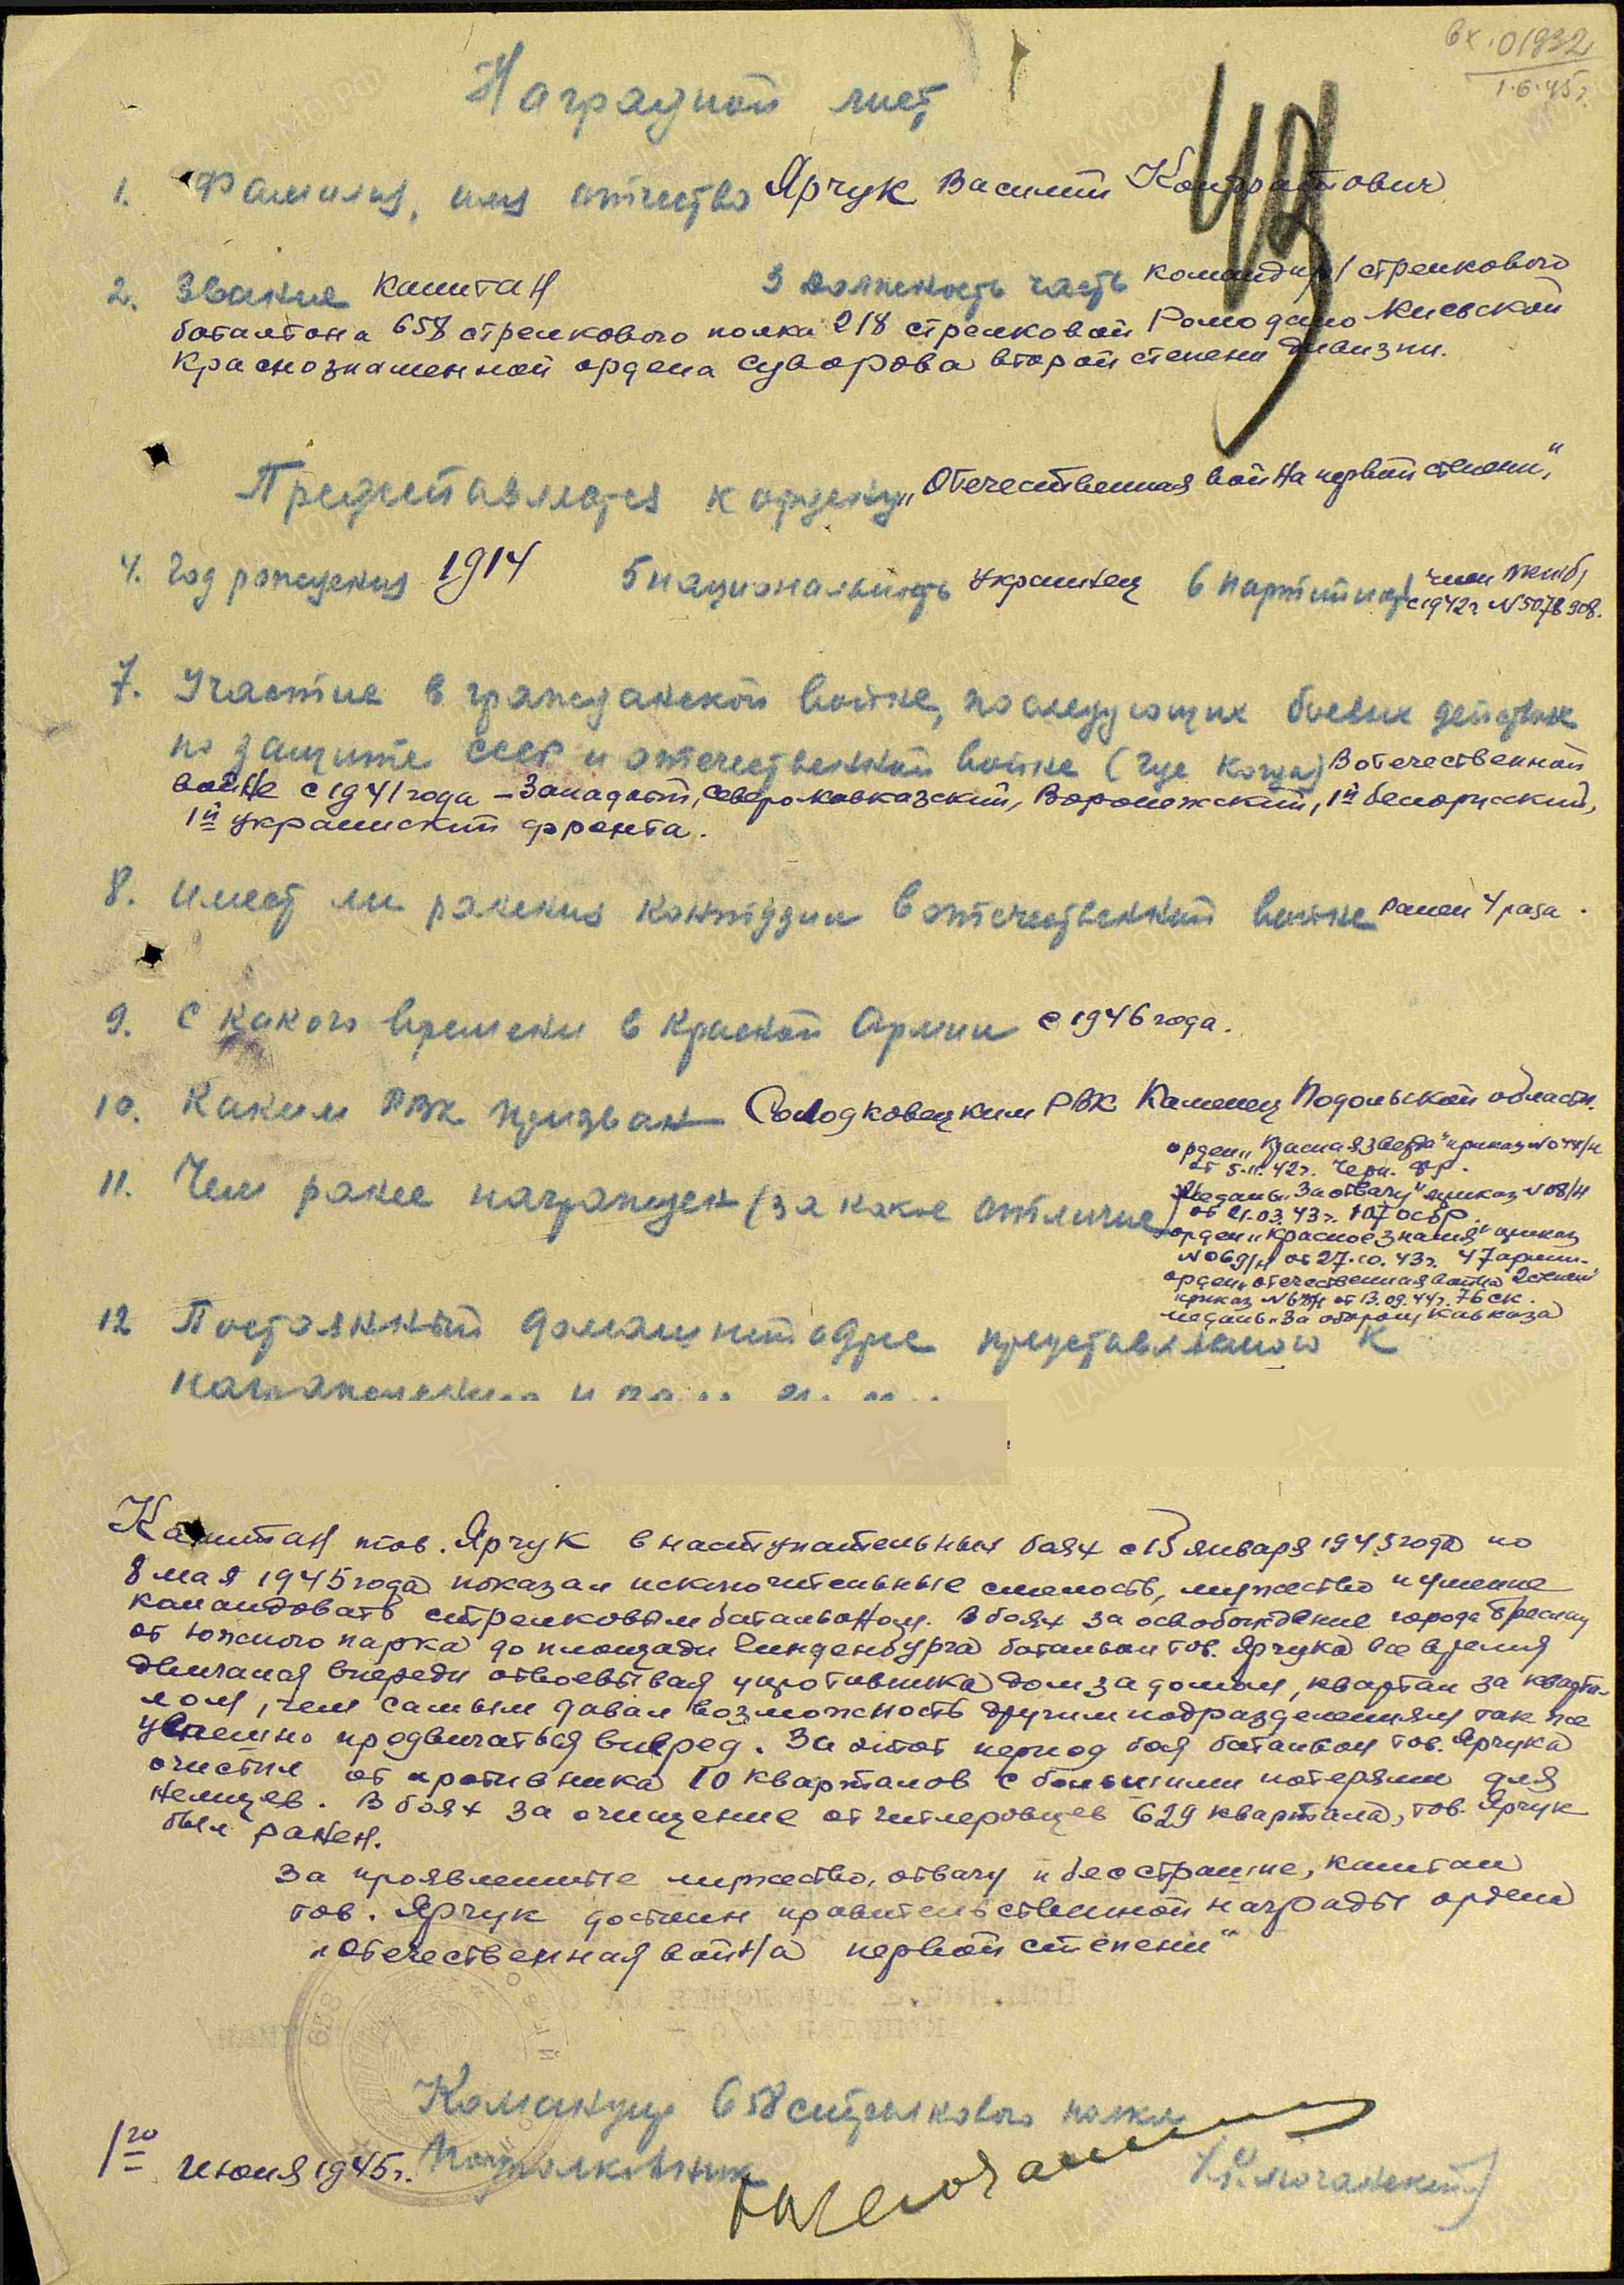 вх. 01932
1.6.45 г.
Наградной лист
1. Фамилия, имя отчество Ярчук Василий Кондратович
2. Звание капитан 3 должность часть командир 1 стрелкового
баталиона 658 стрелкового полка 218 стрелковой Ромодано Киевской
Краснознаменной ордена Суворова второй степени дивизии.
Представляется к ордену „Отечественная война первой степени"
4. Год рождения 1914 5 национальность украинец 6 партийность член ВКП(б)
с 1942 г. №5078908.
7. Участие в гражданской войне, последующих боевых действиях
по защите СССР и отечественной войне (где когда) В отечественной
войне с 1941 года – Западный, Северокавказский, Воронежский, 1й белорусский,
1й украинский фронта.
8. Имеет ли ранения контузии в отечественной войне ранен 4 раза.
9. С какого времени в Красной Армии с 1946 года.
10. Каким РВК призван Солодковецким РВК Каменец Подольской области.
орден „Красная звезда" приказ №044/н
от 5.11.42 г. Черн. фр.
11. Чем ранее награжден (за какие отличие)
Медаль „За отвагу" приказ №08/н
от 21.03.43 г. 107 осбр.
орден „Красное знамя" приказ
№069/н от 27.10.43 г. 47 армии.
орден „отечественная война 2 степени
приказ от 13.09.44 г. 76 ск.
медаль „За оборону Кавказа
12 Постоянный домашний адрес представляемого к
Капитан тов. Ярчук в наступательных боях с 13 января 1945 года по
8 мая 1945 года показал исключительные смелость, мужество и умение
командовать стрелковым батальоном. В боях за освобождение города Бреслау
от Южного парка до площади Гинденбурга батальон тов. Ярчука все время
двигался впереди отвоевывая у противника дом за домом, квартал за кварта-
лом, чем самым давал возможность другим подразделениям так же
успешно продвигаться вперед. За этот период боя батальон тов. Ярчука
очистил от противника 10 кварталов с большими потерями для
немцев. В боях за очищение от гитлеровцев 629 квартала, тов. Ярчук
был ранен.
За проявленные мужество, отвагу и бесстрашие, капитан
тов. Ярчук достоин правительственной награды ордена
„Отечественная война первой степени"
Командир 658 стрелкового полка
1го июня 1945 г. Подполковник